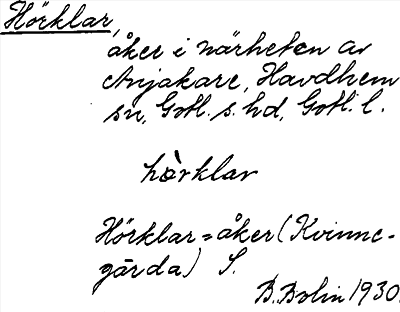 Hörklar,
åker i närheten av
Anjakare, Havdhem
sn, Gotl. s. hd, Gotl. l.
hö̀rklar
Hörklar = åker (Kvinne-
gårda) S.
B. Bolin 1930.